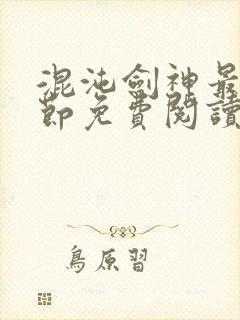 混沌劍神最
節免費閱讀
鳥原習